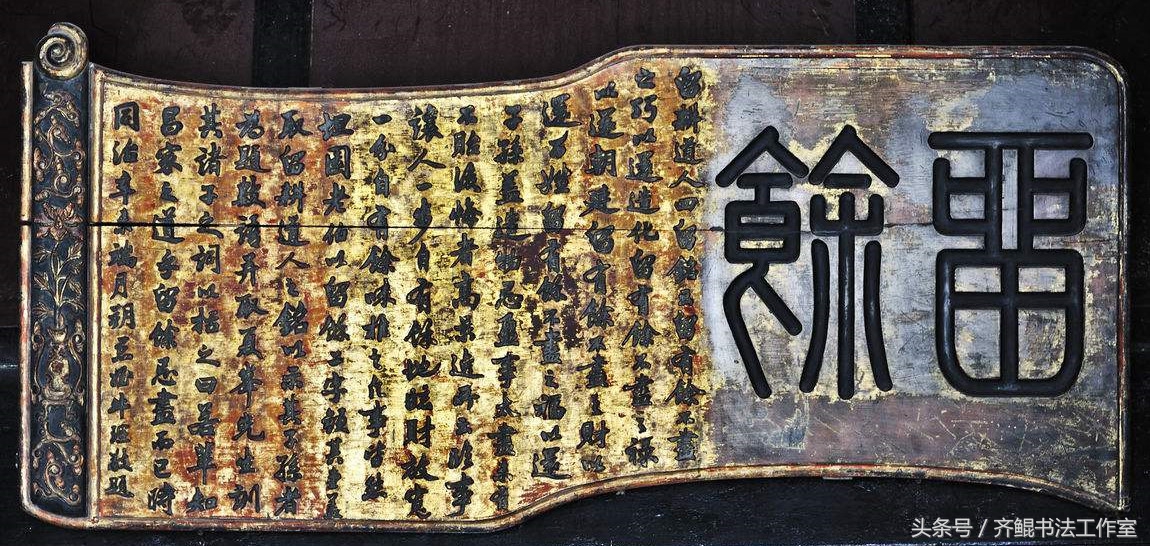 留餘
留耕道人四留銘云留有餘不盡
之巧以還造化留有餘不盡之祿
以還朝廷留有餘不盡之財以
還百姓留有餘不盡之福以還
子孫蓋造物忌盈事太盡未有
不貽後悔者高景逸所云臨事
讓人一步自有餘地臨財放寬
一分自有餘味推之凡事皆然
坦園老伯以留餘二字顏其堂蓋
取留耕道人之銘以示其子孫者
為題數語并取夏峰先生訓
其諸子之詞以括之曰若輩知
昌家之道乎留餘忌盡而已時
同治辛未端月朔牛瑄敬題
头条号 / 齐鲲书法工作室